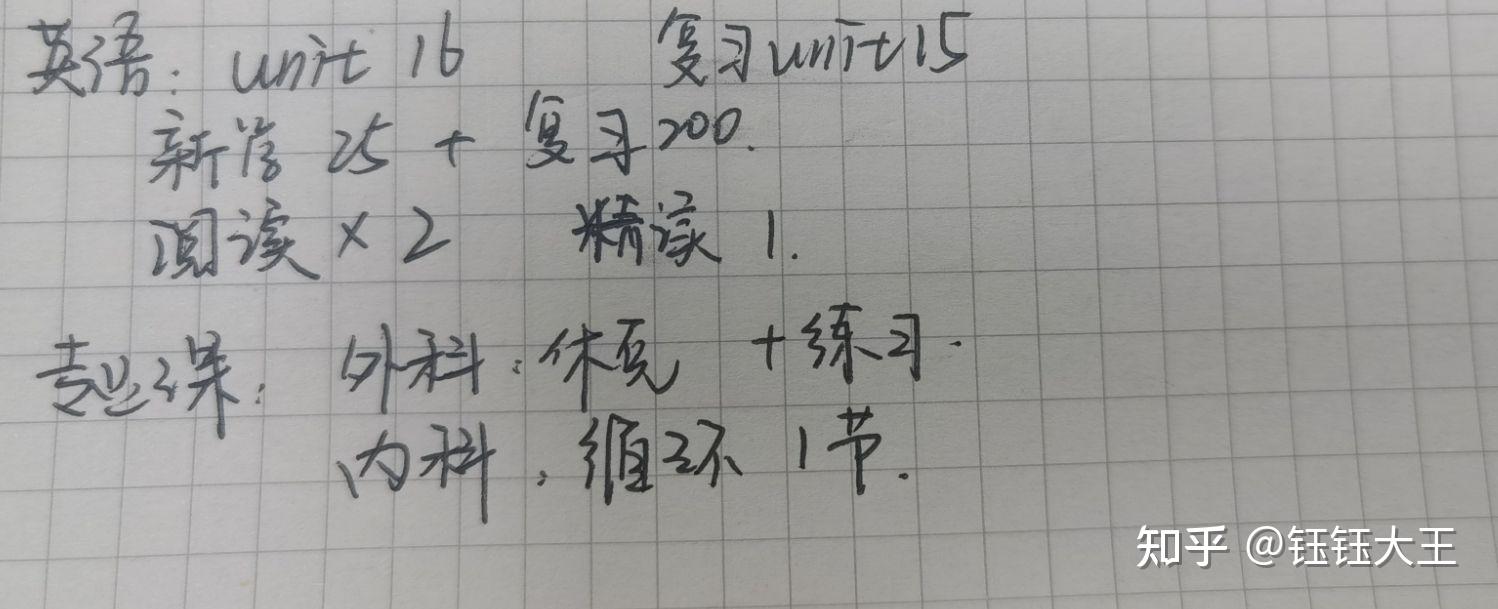 英语: unit 16 复习unit15
新学 25 + 复习200.
阅读 × 2 精读 1.
专业课: 外科:休克 +练习.
内科:循环 1节.
知乎 @钰钰大王